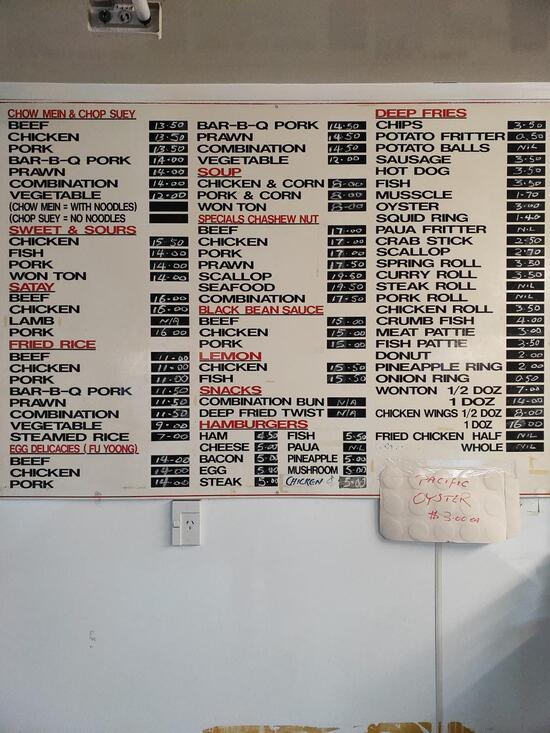 CHOW MEIN & CHOP SUEY
BEEF 13.50
CHICKEN 13.50
PORK 13.50
BAR-B-Q PORK 14.00
PRAWN 14.00
COMBINATION 14.00
VEGETABLE 12.00
(CHOW MEIN = WITH NOODLES)
(CHOP SUEY = NO NOODLES
SWEET & SOURS
CHICKEN 15.50
FISH 14.00
PORK 14.00
WON TON 14.00
SATAY
BEEF 16.00
CHICKEN 16.00
LAMB N/A
PORK 16 00
FRIED RICE
BEEF 11.00
CHICKEN 11.00
PORK 11.00
BAR-B-Q PORK 11.50
PRAWN 11.50
COMBINATION 11.50
VEGETABLE 9.00
STEAMED RICE 7-00
EGG DELICACIES ( FU YOONG)
BEEF 14.00
CHICKEN 14.00
PORK 14.00
BAR-B-Q PORK 14.50
PRAWN 14.50
COMBINATION 14.50
VEGETABLE 12.00
SOUP
CHICKEN & CORN 8.00
PORK & CORN 8.00
WON TON 8.00
SPECIALS CHASHEW NUT
BEEF 17.00
CHICKEN 17.00
PORK 17.00
PRAWN 17.50
SCALLOP 19.50
SEAFOOD 19.50
COMBINATION 17.50
BLACK BEAN SAUCE
BEEF 15.00
CHICKEN 15.00
PORK 15.00
LEMON
CHICKEN 15.50
FISH 15.50
SNACKS
COMBINATION BUN N/A
DEEP FRIED TWIST N/A
HAMBURGERS
HAM 4.50 FISH 5.50
CHEESE 5.00 PAUA NIL
BACON 5.00 PINEAPPLE 5.00
EGG 5.00 MUSHROOM 5.00
STEAK 5.00 CHICKEN 5.00
DEEP FRIES
CHIPS 3.50
POTATO FRITTER 0.50
POTATO BALLS NIL
SAUSAGE 3.50
HOT DOG 3.50
FISH 3.50
MUSSCLE 1.70
OYSTER 3.00
SQUID RING 1.40
PAUA FRITTER NIL
CRAB STICK 2.50
SCALLOP 2.70
SPRING ROLL 3.50
CURRY ROLL 3.50
STEAK ROLL NIL
PORK ROLL NIL
CHICKEN ROLL 3.50
CRUMB FISH 4.00
MEAT PATTIE 3.00
FISH PATTIE 3.50
DONUT 2.00
PINEAPPLE RING 2.00
ONION RING 0.50
WONTON 1/2 DOZ 7.00
1 DOZ 14.00
CHICKEN WINGS 1/2 DOZ 8.00
1 DOZ 16.00
FRIED CHICKEN HALF NIL
WHOLE NIL
PACIFIC
OYSTER
$3.00 ea